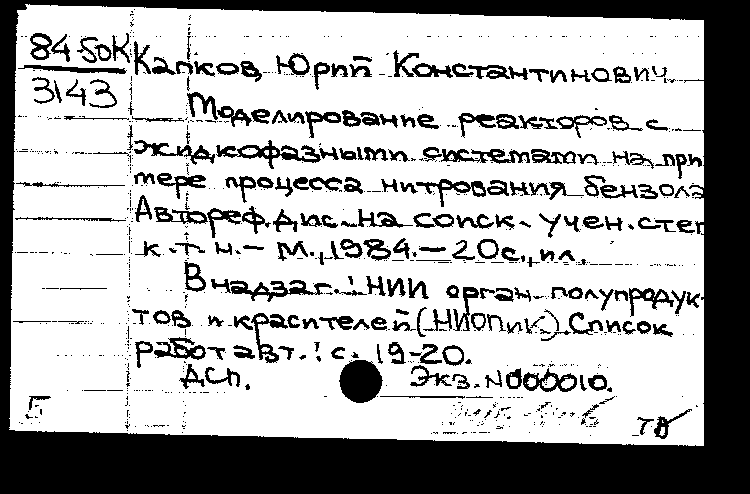 84-5ок
3143
Капков, Юрий Константинович.
Моделирование реакторов с
жидкофазными системами на при
мере процесса нитрования бензола
Автореф. дис. на соиск. учен. степ
к. т. н. - М., 1984. - 20с., ил.
В надзаг.: НИИ орган. полупродук-
тов и красителей (НИОПиК). Список
работ авт.: с. 19-20.
ДСП. Экз. N000010.
Б